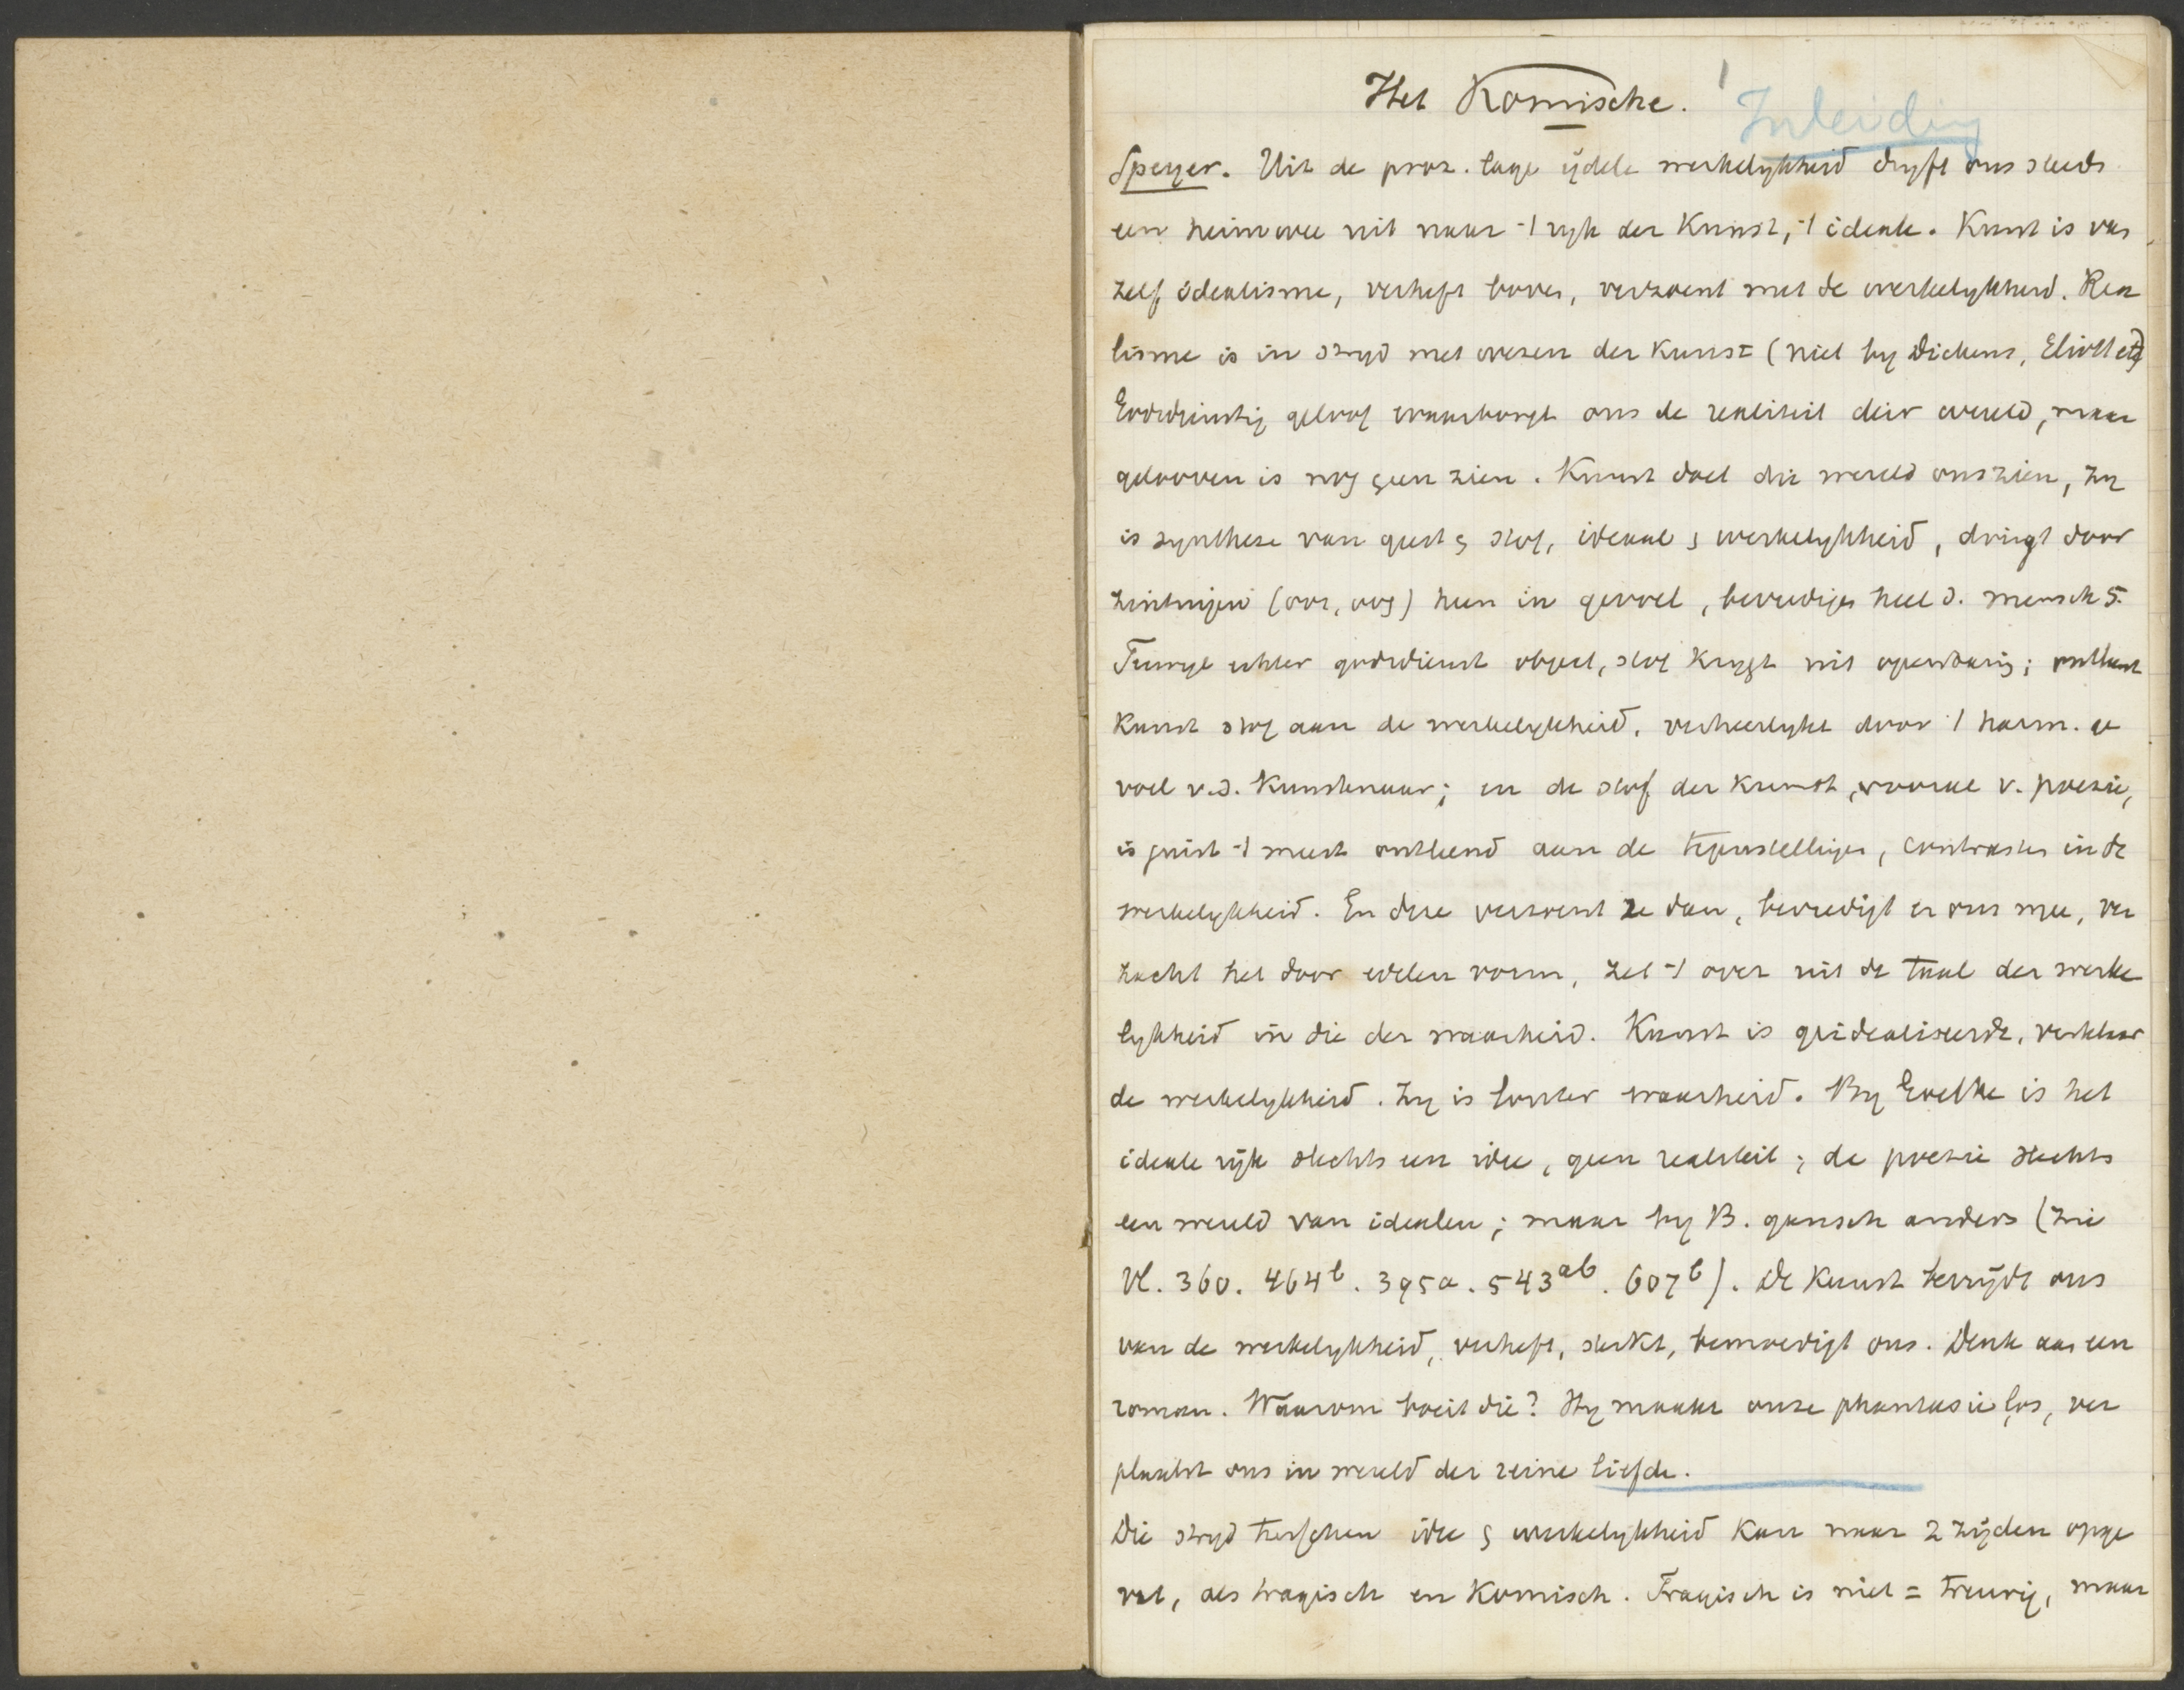 Het Komische. 1
Inleiding
Speyer. Uit de proz. lage ijdele werkelykheid dryft ons steeds
een heimwee uit naar -1 ryk der Kunst, -1 ideale. Kunst is van
zelf idealisme, verheft boven, verzoent met de werkelykheid. Rea
lisme is in stryd met wezen der Kunst (niet by Dickens, Eliott etc)
Godsdienstig geloof waarborgt ons de realiteit dier wereld, maar
gelooven is nog geen zien. Kunst doet die wereld ons zien, zy
is synthese van geest & stof, ideaal & werkelykheid, dringt door
zintuigen (oor, oog) heen in gevoel, bevredigt heel d. mensch
Terwyl echter godsdienst object, stof krygt uit openbaring; ontleent
Kunst stof aan de werkelykheid, verheerlykt door 1 harm. ge
voel v.d. Kunstenaar; en de stof der Kunst, vooral v. poezie,
is juist -1 meest ontleend aan de tegenstellingen, contrasten in de
werkelykheid. En deze verzoent ze dan, bevredigt er ons mee, ver
zacht het door edelen vorm, zet -1 over uit de taal der werke
lykheid in die der waarheid. Kunst is geidealiseerde, verklaar
de werkelykheid. Zy is louter waarheid. By Goethe is het
ideale rijk slechts een idee, geen realiteit; de poezie slechts
een wereld van idealen; maar by B. gansch anders (zie
Vl. 360. 464b. 395a. 543ab. 607b). De Kunst bevrijdt ons
van de werkelykheid, verheft, sterkt, bemoedigt ons. Denk aan een
roman. Waarom boeit die? Hy maakt onze phantasie los, ver
plaatst ons in wereld der reine liefde.
Die stryd tusschen idee & werkelykheid kan naar 2 zijden opge
vat, als tragisch en Komisch. Tragisch is niet = treurig, maar